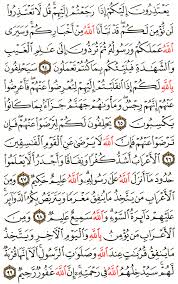 يَعْتَذِرُونَ إِلَيْكُمْ إِذَا رَجَعْتُمْ إِلَيْهِمْ قُل لَّا تَعْتَذِرُوا۟
لَن نُّؤْمِنَ لَكُمْ قَدْ نَبَّأَنَا ٱللَّهُ مِنْ أَخْبَارِكُمْ وَسَيَرَى
ٱللَّهُ عَمَلَكُمْ وَرَسُولُهُۥ ثُمَّ تُرَدُّونَ إِلَىٰ عَٰلِمِ ٱلْغَيْبِ
وَٱلشَّهَٰدَةِ فَيُنَبِّئُكُم بِمَا كُنتُمْ تَعْمَلُونَ ٩٤ سَيَحْلِفُونَ
بِٱللَّهِ لَكُمْ إِذَا ٱنقَلَبْتُمْ إِلَيْهِمْ لِتُعْرِضُوا۟ عَنْهُمْ فَأَعْرِضُوا۟
عَنْهُمْ إِنَّهُمْ رِجْسٌ وَمَأْوَىٰهُمْ جَهَنَّمُ جَزَآءًۢ بِمَا كَانُوا۟
يَكْسِبُونَ ٩٥ يَحْلِفُونَ لَكُمْ لِتَرْضَوْا۟ عَنْهُمْ فَإِن
تَرْضَوْا۟ عَنْهُمْ فَإِنَّ ٱللَّهَ لَا يَرْضَىٰ عَنِ ٱلْقَوْمِ ٱلْفَٰسِقِينَ ٩٦
ٱلْأَعْرَابُ أَشَدُّ كُفْرًا وَنِفَاقًا وَأَجْدَرُ أَلَّا يَعْلَمُوا۟
حُدُودَ مَآ أَنزَلَ ٱللَّهُ عَلَىٰ رَسُولِهِۦ وَٱللَّهُ عَلِيمٌ حَكِيمٌ ٩٧
وَمِنَ ٱلْأَعْرَابِ مَن يَتَّخِذُ مَا يُنفِقُ مَغْرَمًا وَيَتَرَبَّصُ بِكُمُ ٱلدَّوَآئِرَ
عَلَيْهِمْ دَآئِرَةُ ٱلسَّوْءِ وَٱللَّهُ سَمِيعٌ عَلِيمٌ ٩٨
وَمِنَ ٱلْأَعْرَابِ مَن يُؤْمِنُ بِٱللَّهِ وَٱلْيَوْمِ ٱلْءَاخِرِ وَيَتَّخِذُ
مَا يُنفِقُ قُرُبَٰتٍ عِندَ ٱللَّهِ وَصَلَوَٰتِ ٱلرَّسُولِ أَلَآ إِنَّهَا قُرْبَةٌ
لَّهُمْ سَيُدْخِلُهُمُ ٱللَّهُ فِى رَحْمَتِهِۦٓ إِنَّ ٱللَّهَ غَفُورٌ رَّحِيمٌ ٩٩